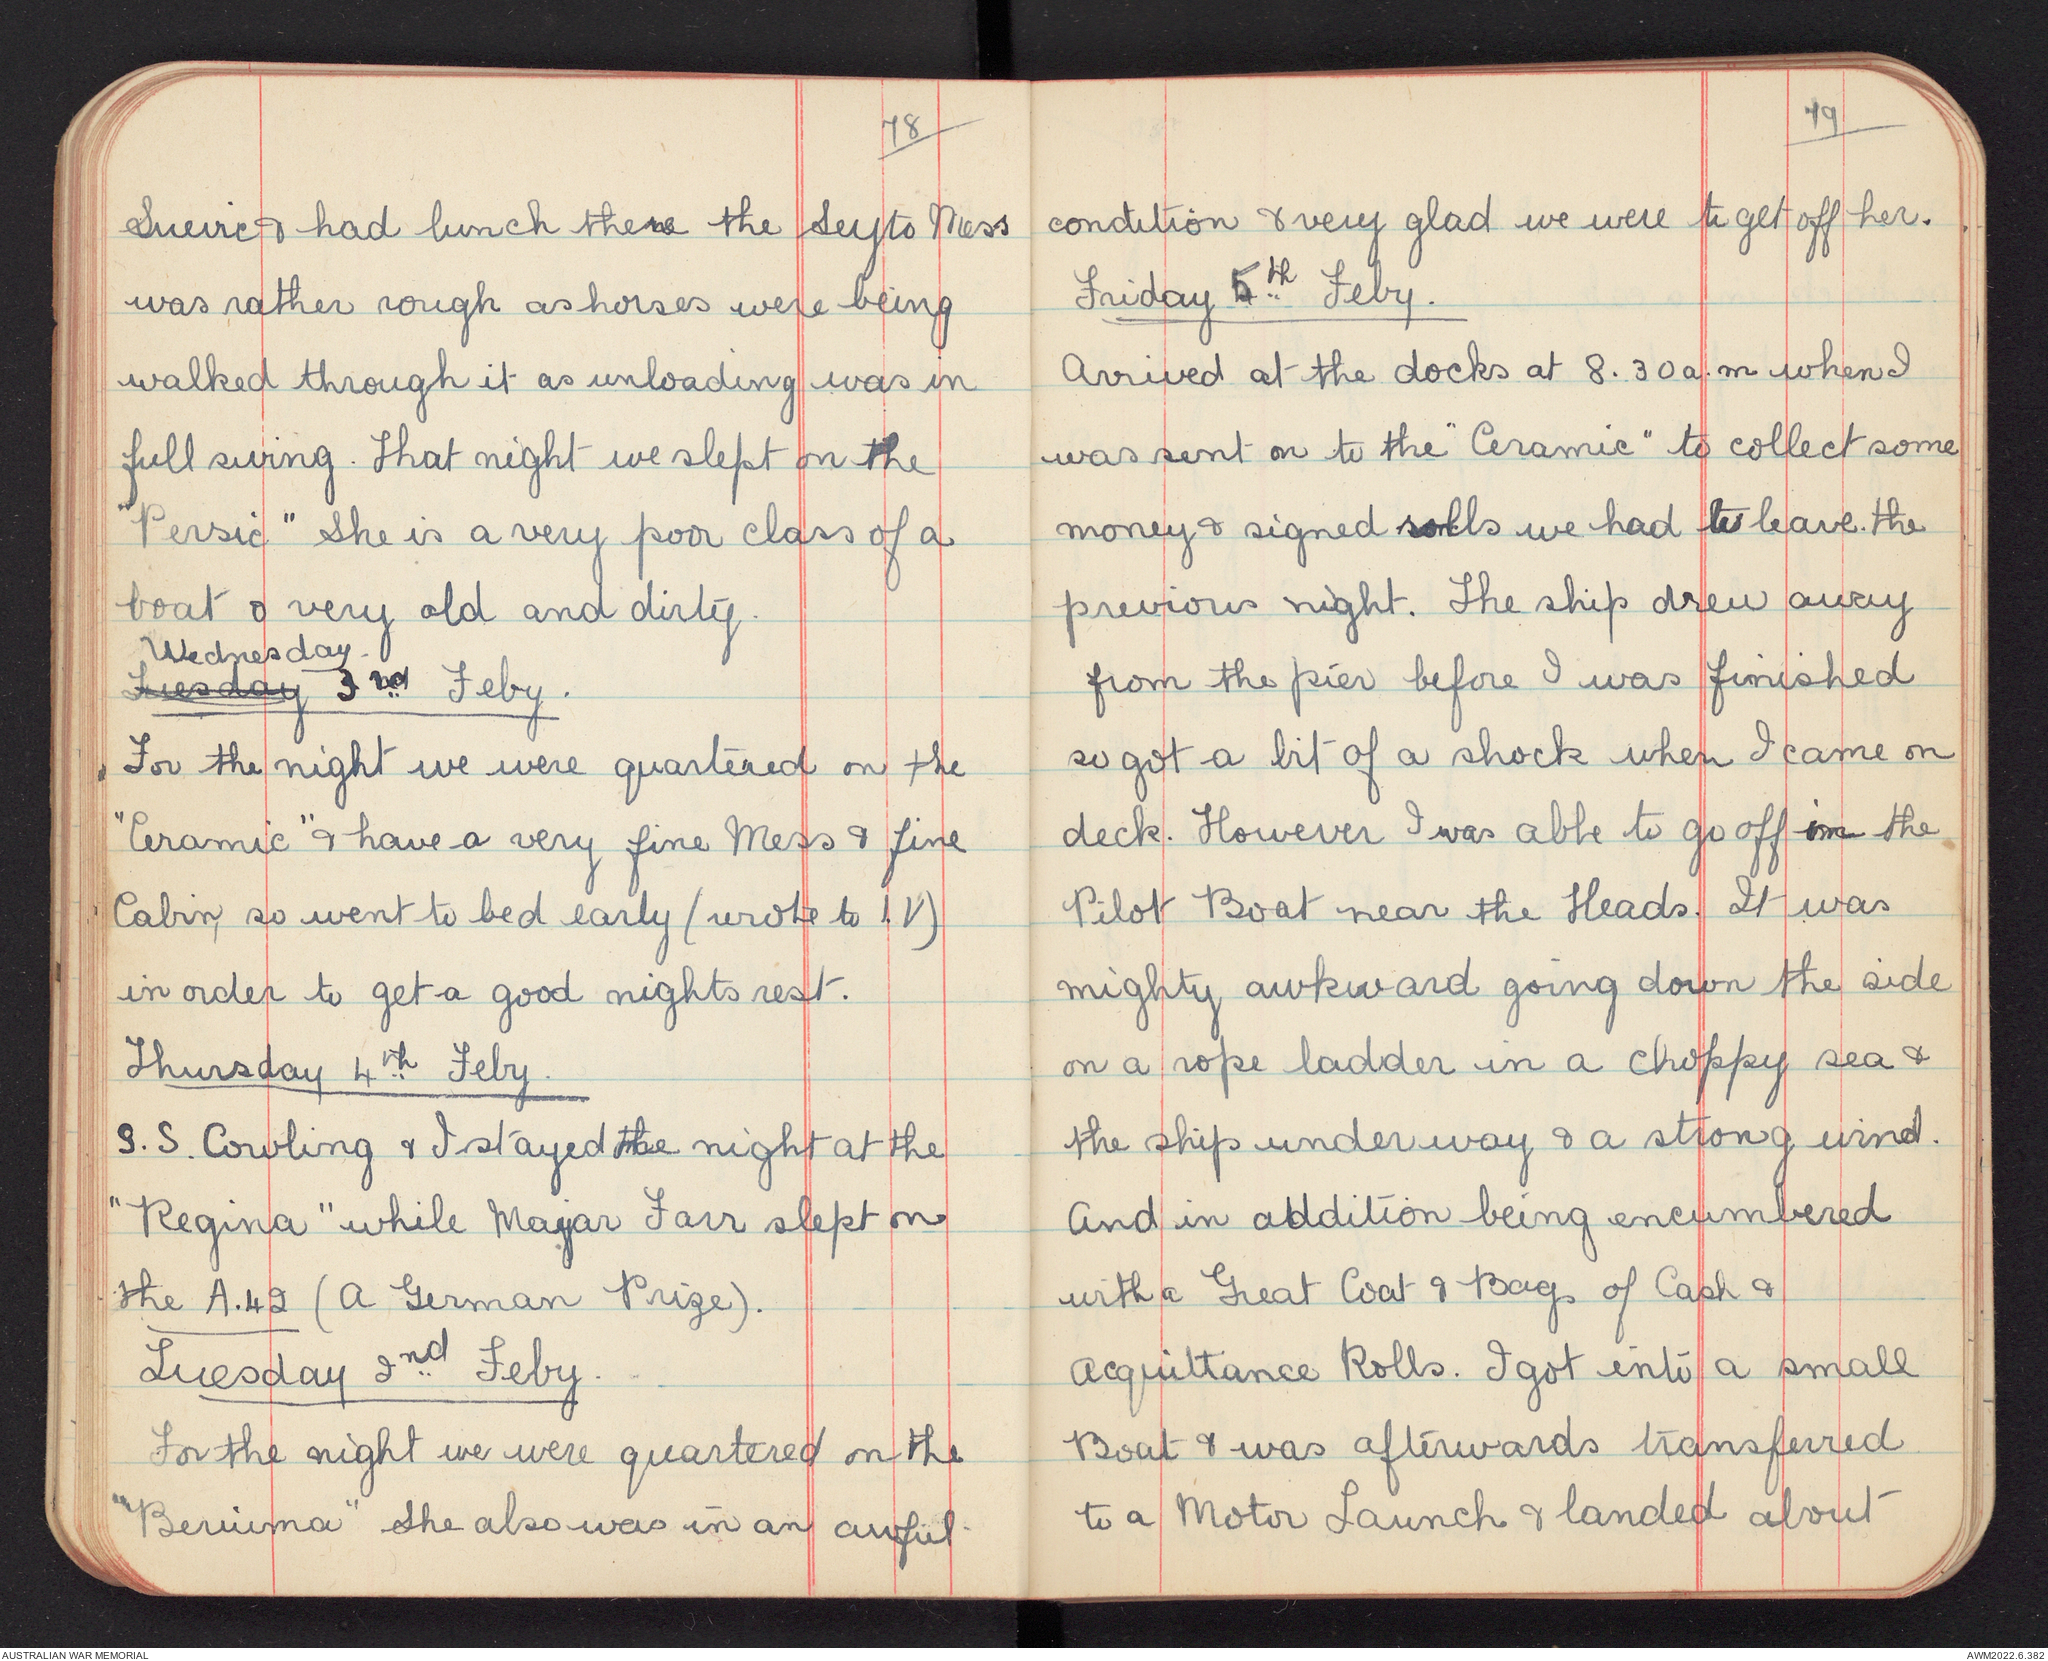 78
Suevic & had lunch there the Seyto Mess
was rather rough as horses were being
walked through it as unloading was in
full swing. That night we slept on the
"Persic" She is a very poor class of a
boat & very old and dirty.
Wednesday
Tuesday 3rd Feby.
For the night we were quartered on the
"Ceramic" & have a very fine Mess & fine
Cabin, so went to bed early (wrote to I.V)
in order to get a good nights rest.
Thursday 4th Feby.
S.S. Cowling & I stayed the night at the
"Regina" while Major Farr slept on
the A.42 (A German Prize).
Tuesday 2nd Feby.
For the night we were quartered on the
"Beruima" She also was in an awful
79
condition & very glad we were to get off her.
Friday 5th Feby.
Arrived at the docks at 8.30 a.m when I
was sent on to the "Ceramic" to collect some
money & signed rolls we had to leave the
previous night. The ship drew away
from the pier before I was finished
so got a bit of a shock when I came on
deck. However I was able to go off in the
Pilot Boat near the Heads. It was
mighty awkward going down the side
on a rope ladder in a choppy sea &
the ship under way & a strong wind.
And in addition being encumbered
with a Great Coat & Bags of Cash &
Acquittance Rolls. I got into a small
Boat & was afterwards transferred
to a Motor Launch & landed about
AUSTRALIAN WAR MEMORIAL
AWM2022.6.382